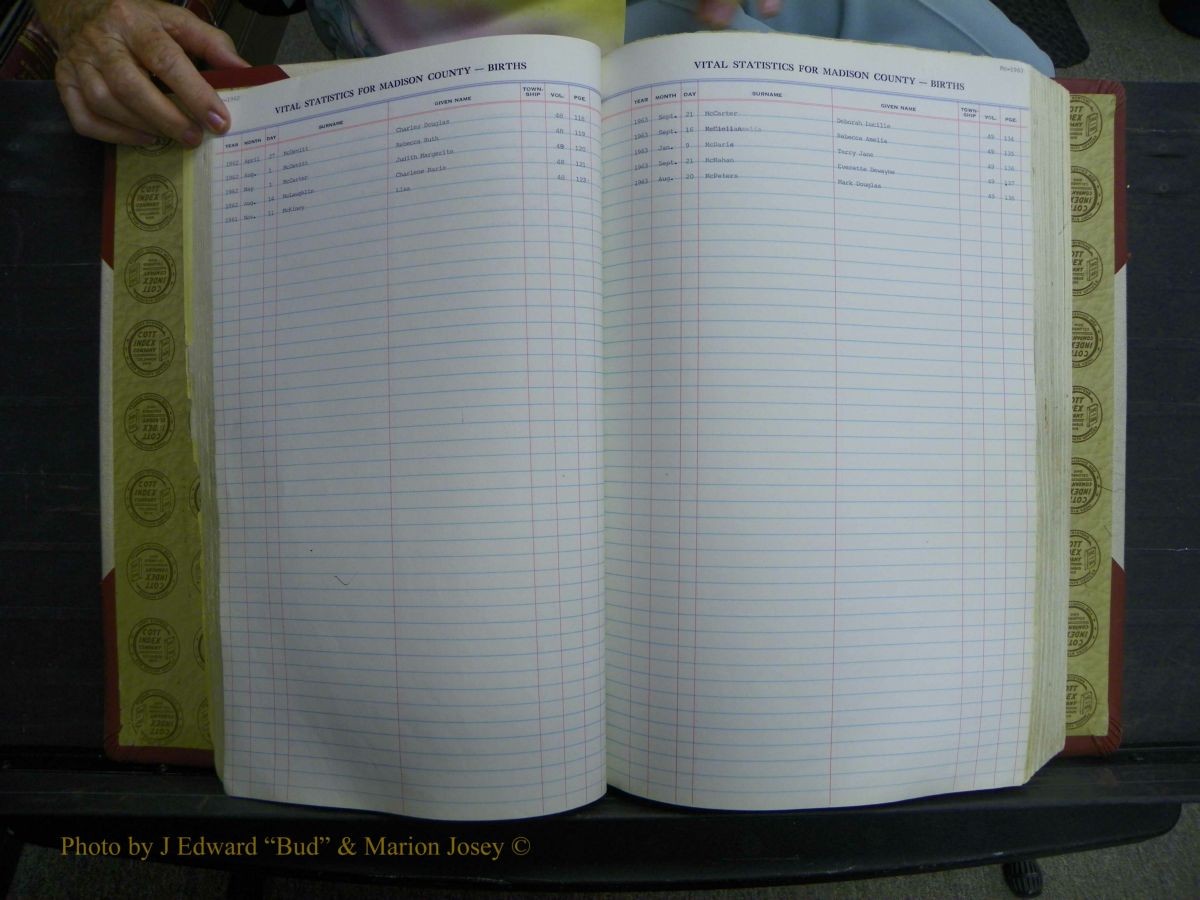 Mc-1962
VITAL STATISTICS FOR MADISON COUNTY — BIRTHS
YEAR MONTH DAY SURNAME GIVEN NAME TOWN-SHIP VOL. PGE.
1962 April 27 McDevitt Charles Douglas 48 118
1962 Aug. 1 McDevitt Rebecca Ruth 48 119
1962 May 1 McCarter Judith Margerite 48 120
1962 Aug. 14 McLaughlin Charlene Paris 48 121
1961 Nov. 11 McKiney Lisa 48 122
Mc-1963
VITAL STATISTICS FOR MADISON COUNTY — BIRTHS
YEAR MONTH DAY SURNAME GIVEN NAME TOWN-SHIP VOL. PGE.
1963 Sept. 21 McCarter Deborah Lucille 49 134
1963 Sept. 16 Rebecca Amelia 49 135
1963 Jan. 9 McDaris Terry Jane 49 136
1963 Sept. 21 McMahan Everette Dewayne 49 137
1963 Aug. 20 McPeters Mark Douglas 49 138
COTT INDEX COMPANY
Photo by J Edward “Bud” & Marion Josey ©